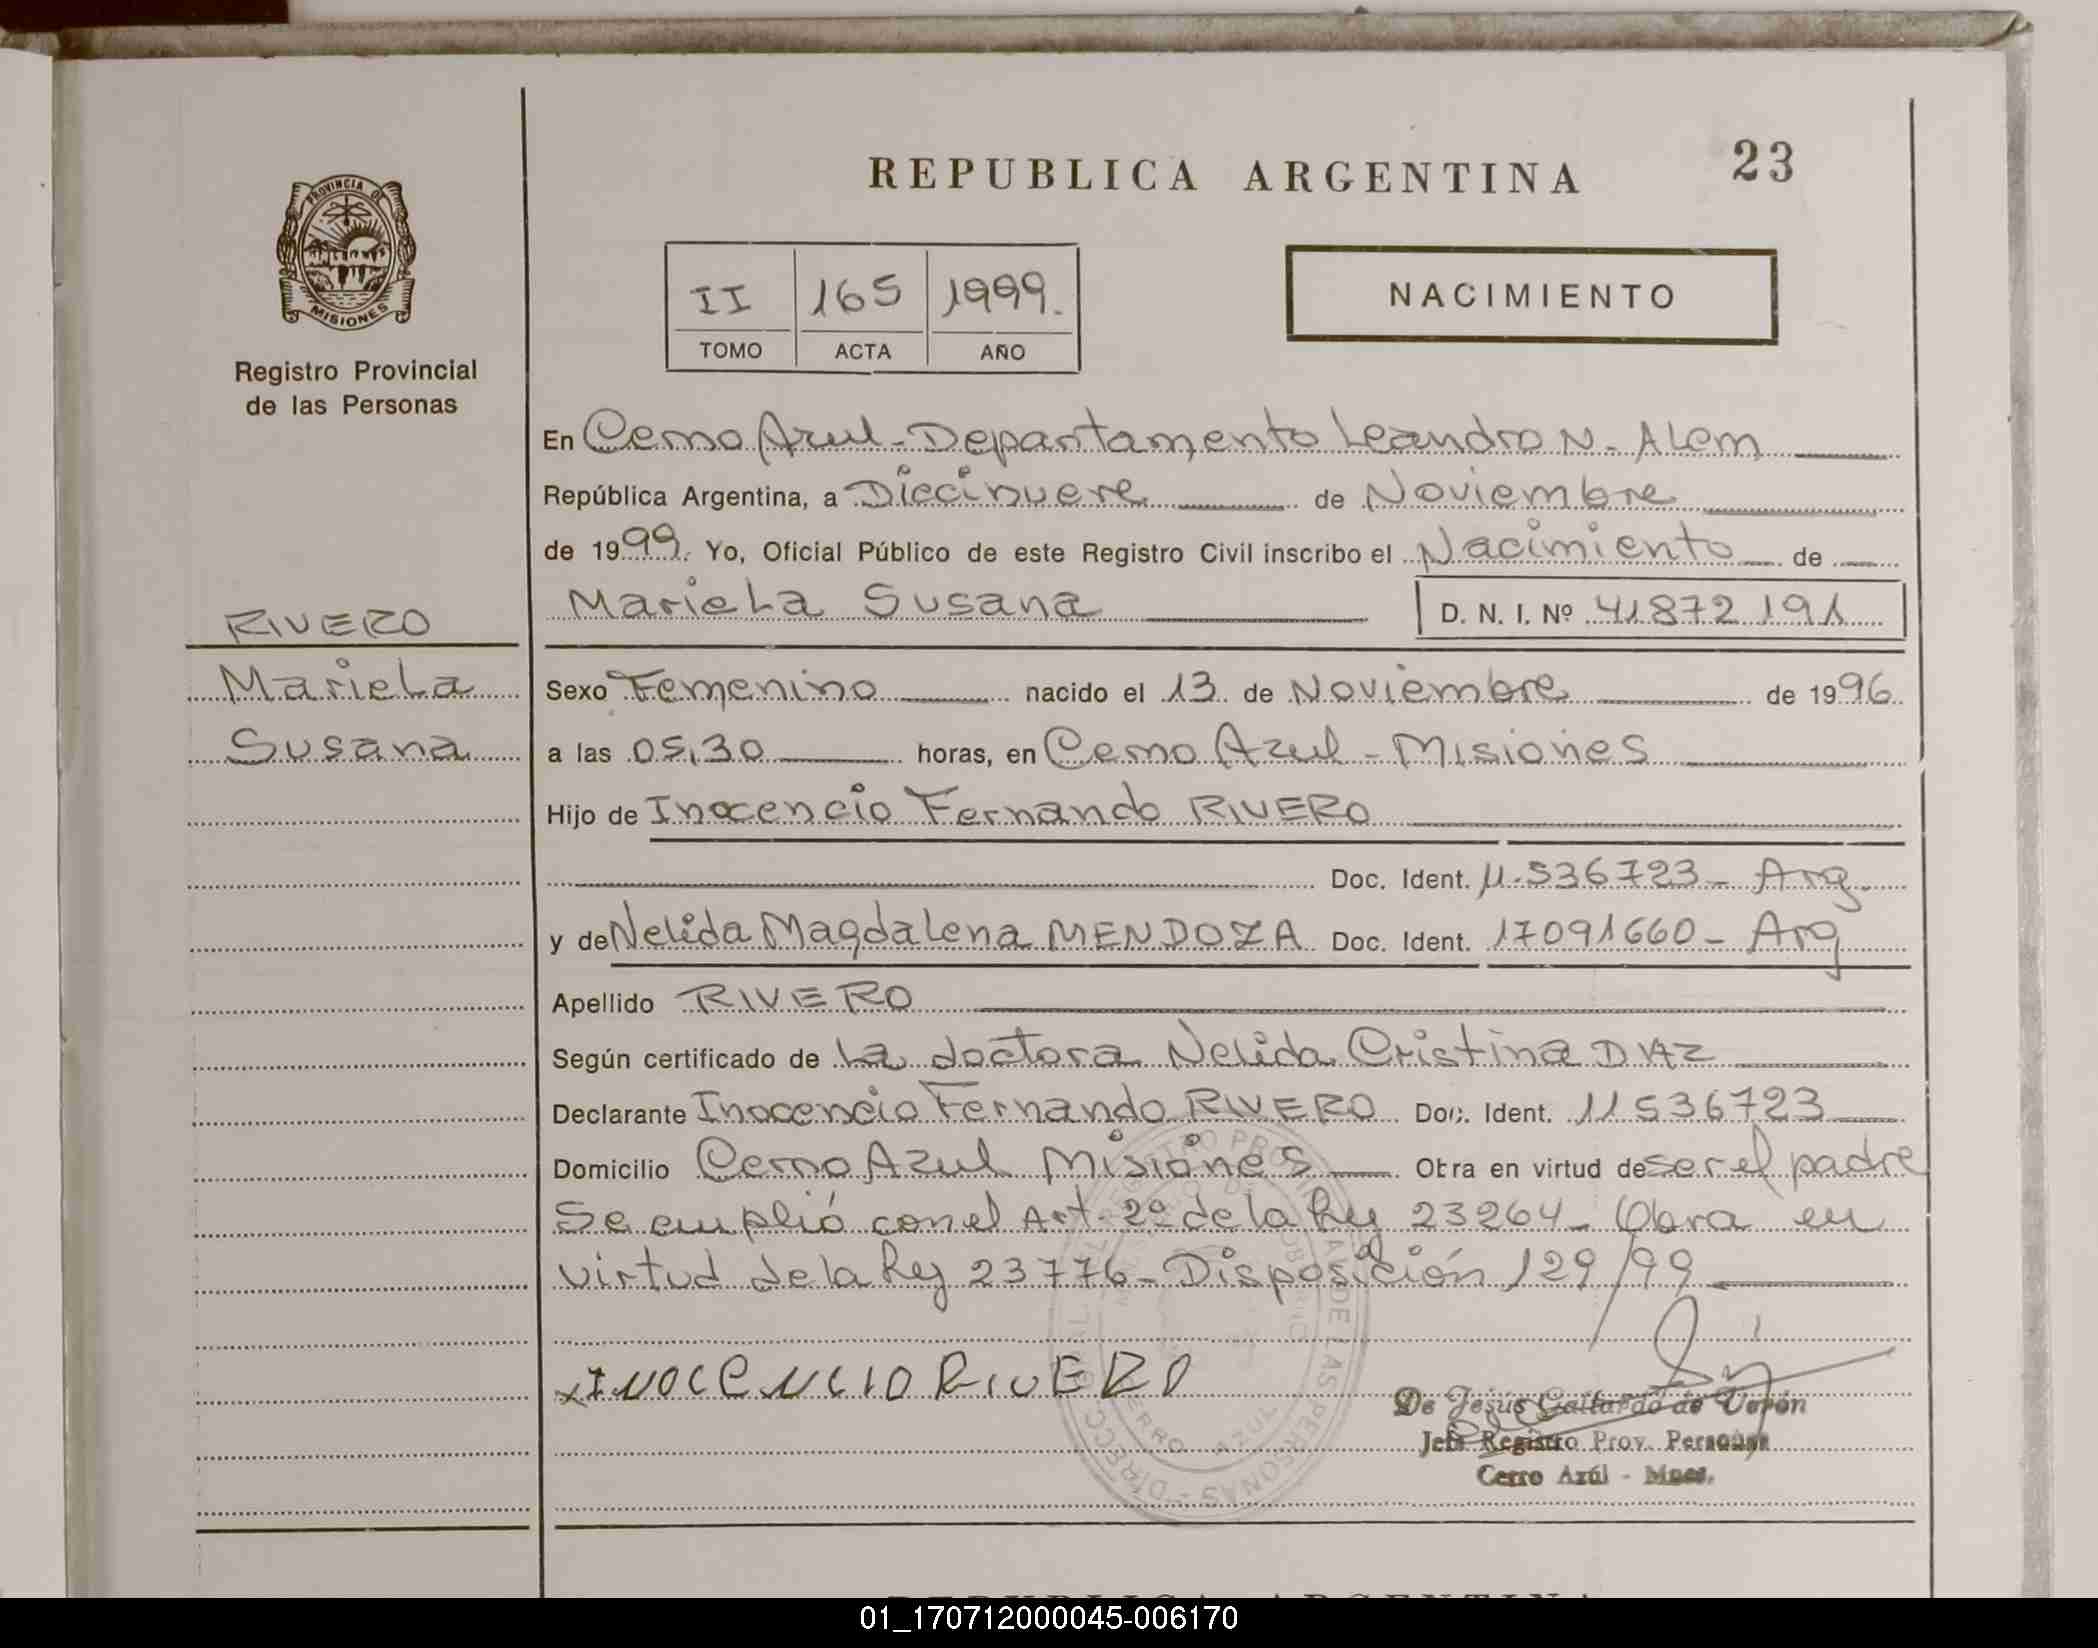 REPUBLICA ARGENTINA
23
PROVINCIA DE
MISIONES
Registro Provincial
de las Personas
II 165 1999.
TOMO ACTA AÑO
NACIMIENTO
En Cerro Azul - Departamento Leandro N. Alem
República Argentina, a Diecinueve de Noviembre
de 1999. Yo, Oficial Público de este Registro Civil inscribo el Nacimiento de
Mariela Susana D. N. I. Nº 41872191
RIVERO
Mariela
Susana
Sexo Femenino nacido el 13 de Noviembre de 1996.
a las 05,30 horas, en Cerro Azul - Misiones
Hijo de Inocencio Fernando RIVERO
Doc. Ident. 11.536723 - Arg.
y de Nelida Magdalena MENDOZA Doc. Ident. 17091660 - Arg
Apellido RIVERO
Según certificado de la doctora Nelida Cristina DIAZ
Declarante Inocencio Fernando RIVERO Doc. Ident. 11536723
Domicilio Cerro Azul Misiones Obra en virtud de ser el padre
Se cumplió con el Art. 2º de la Ley 23264 - Obra en
virtud de la Ley 23776 - Disposición 129/99
x INOCENCIO RIVERO
De Jesús Gallardo de Verón
Jefe Registro Prov. Personas
Cerro Azúl - Mnes.
REPUBLICA ARGENTINA
01_170712000045-006170